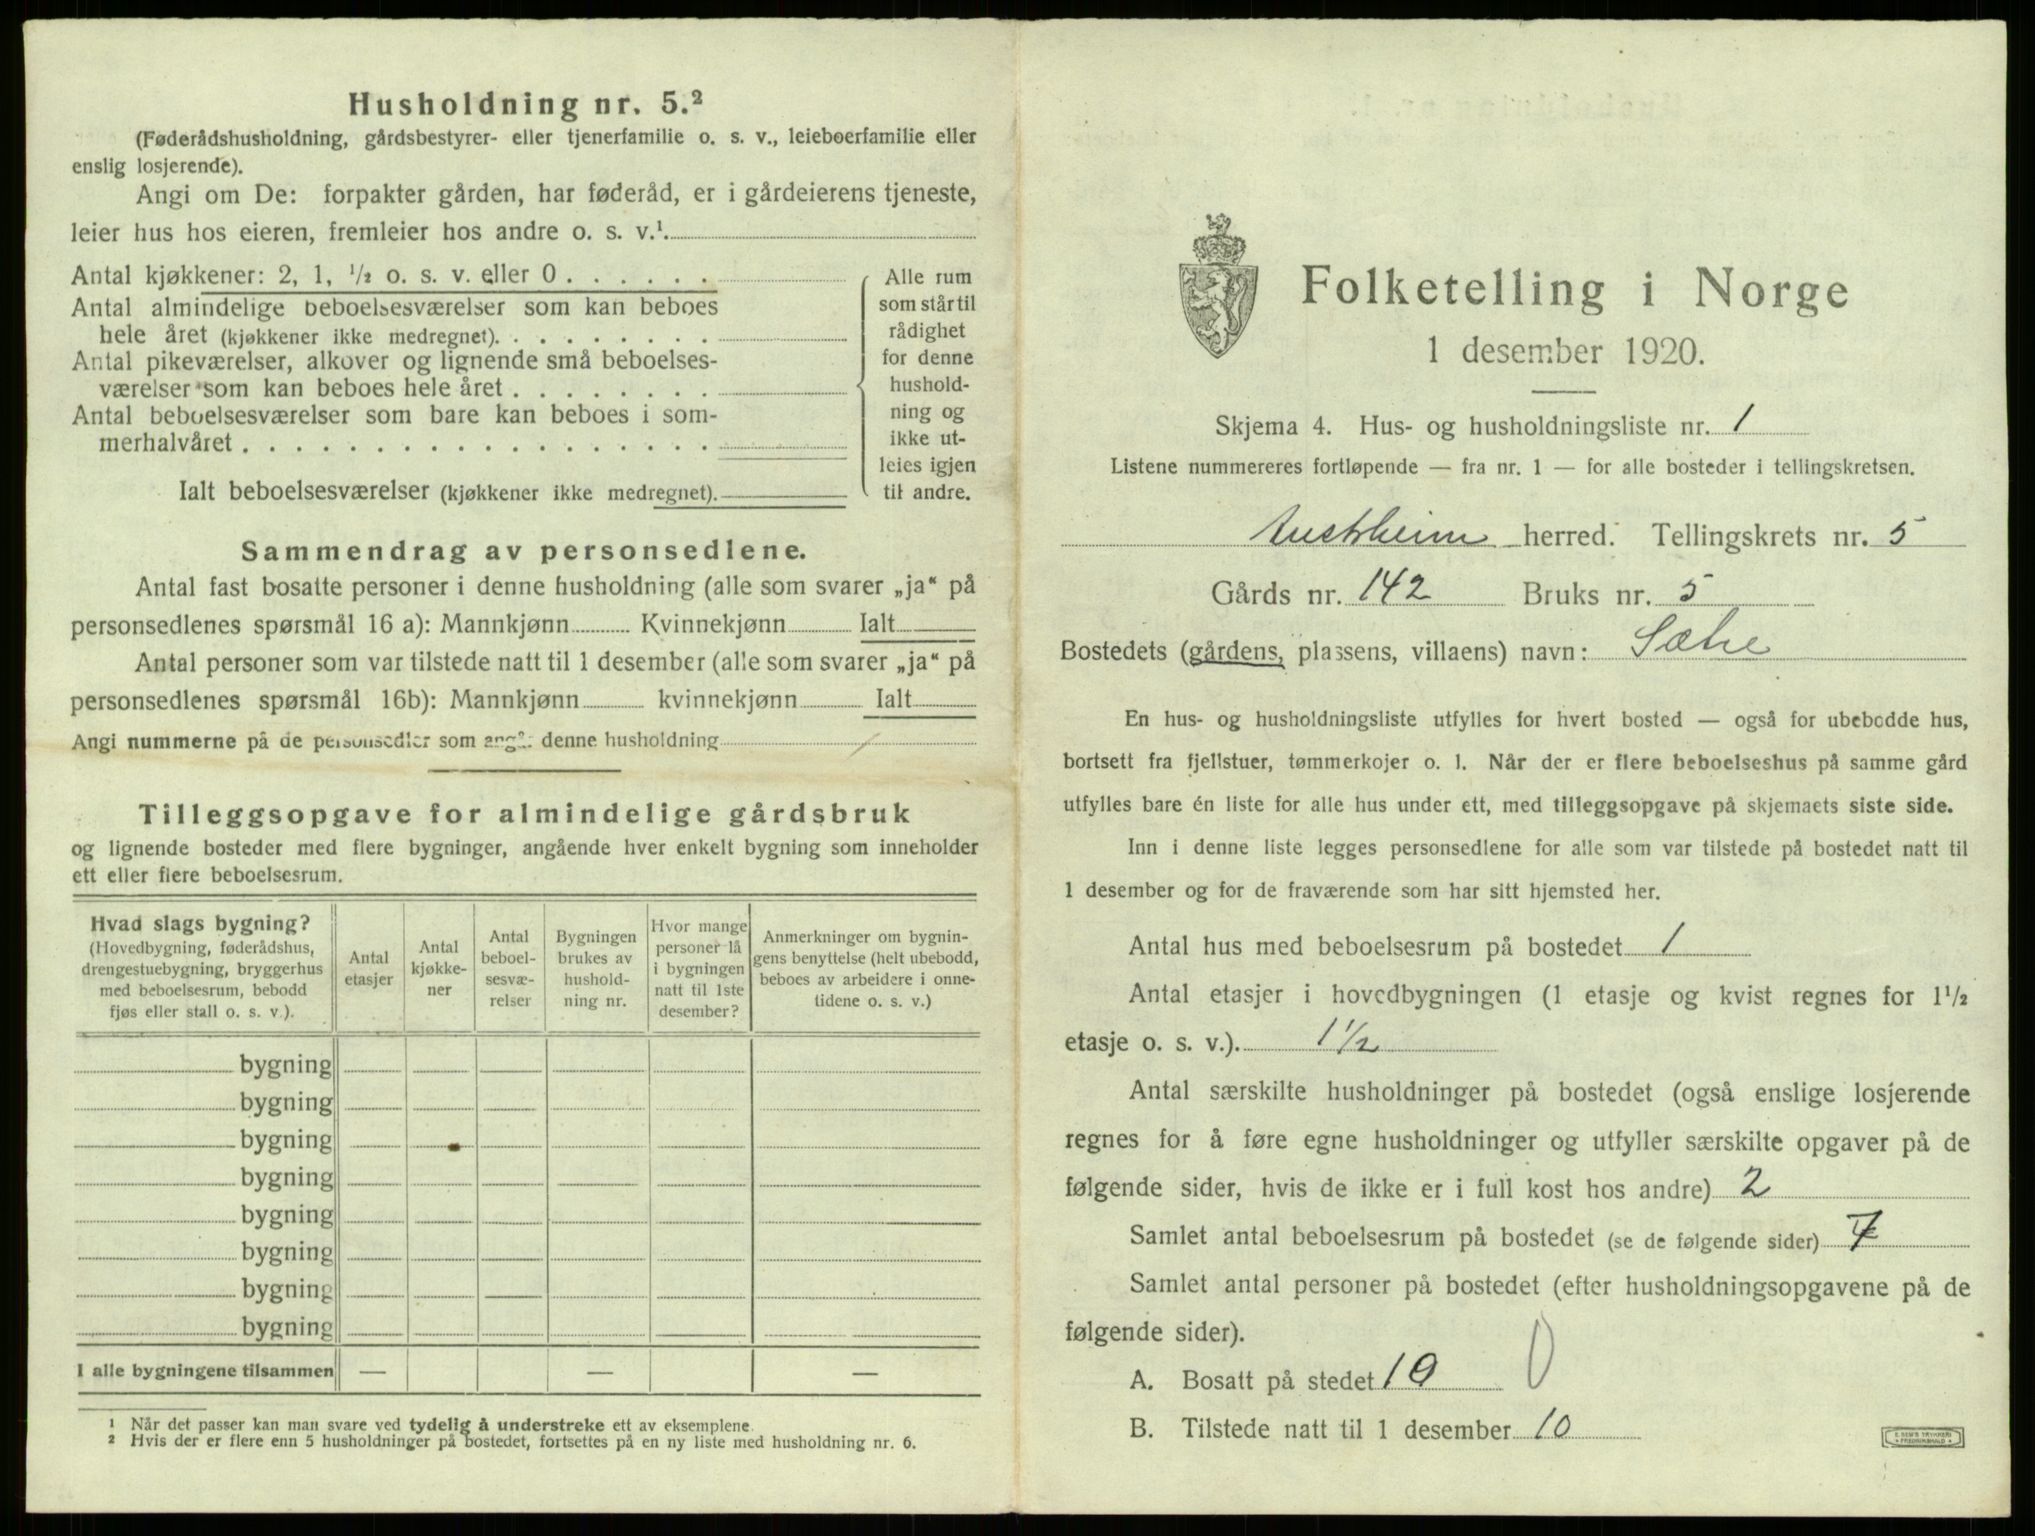 Husholdning nr. 5.²
(Føderådshusholdning, gårdsbestyrer- eller tjenerfamilie o. s. v., leieboerfamilie eller
enslig losjerende).
Angi om De: forpakter gården, har føderåd, er i gårdeierens tjeneste,
leier hus hos eieren, fremleier hos andre o. s. v.¹
Antal kjøkkener: 2, 1, ½ o. s. v. eller 0 . . . . . .
Antal almindelige beboelsesværelser som kan beboes
hele året (kjøkkener ikke medregnet). . . . . . . . .
Antal pikeværelser, alkover og lignende små beboelses-
værelser som kan beboes hele året . . . . . . . .
Antal beboelsesværelser som bare kan beboes i som-
merhalvåret . . . . . . . . . . . . . . . . .
Ialt beboelsesværelser (kjøkkener ikke medregnet).
Alle rum
som står til
rådighet
for denne
hushold-
ning og
ikke ut-
leies igjen
til andre.
Sammendrag av personsedlene.
Antal fast bosatte personer i denne husholdning (alle som svarer „ja“ på
personsedlenes spørsmål 16 a): Mannkjønn Kvinnekjønn Ialt
Antal personer som var tilstede natt til 1 desember (alle som svarer „ja“ på
personsedlenes spørsmål 16b): Mannkjønn kvinnekjønn Ialt
Angi nummerne på de personsedler som angår denne husholdning
Tilleggsopgave for almindelige gårdsbruk
og lignende bosteder med flere bygninger, angående hver enkelt bygning som inneholder
ett eller flere beboelsesrum.
Hvad slags bygning?
(Hovedbygning, føderådshus,
drengestuebygning, bryggerhus
med beboelsesrum, bebodd
fjøs eller stall o. s. v.).
Antal
etasjer
Antal
kjøkke-
ner
Antal
beboel-
sesvæ-
relser
Bygningen
brukes av
hushold-
ning nr.
Hvor mange
personer lå
i bygningen
natt til 1ste
desember?
Anmerkninger om bygnin-
gens benyttelse (helt ubebodd,
beboes av arbeidere i onne-
tidene o. s. v.)
bygning
bygning
bygning
bygning
bygning
bygning
bygning
bygning
I alle bygningene tilsammen — — —
¹ Når det passer kan man svare ved tydelig å understreke ett av eksemplene.
² Hvis der er flere enn 5 husholdninger på bostedet, fortsettes på en ny liste med husholdning nr. 6.
Folketelling i Norge
1 desember 1920.
Skjema 4. Hus- og husholdningsliste nr. 1
Listene nummereres fortløpende — fra nr. 1 — for alle bosteder i tellingskretsen.
Austrheim herred. Tellingskrets nr. 5
Gårds nr. 142 Bruks nr. 5
Bostedets (gårdens, plassens, villaens) navn: Sætre
En hus- og husholdningsliste utfylles for hvert bosted — også for ubebodde hus,
bortsett fra fjellstuer, tømmerkojer o. l. Når der er flere beboelseshus på samme gård
utfylles bare én liste for alle hus under ett, med tilleggsopgave på skjemaets siste side.
Inn i denne liste legges personsedlene for alle som var tilstede på bostedet natt til
1 desember og for de fraværende som har sitt hjemsted her.
Antal hus med beboelsesrum på bostedet 1
Antal etasjer i hovedbygningen (1 etasje og kvist regnes for 1½
etasje o. s. v.). 1½
Antal særskilte husholdninger på bostedet (også enslige losjerende
regnes for å føre egne husholdninger og utfyller særskilte opgaver på de
følgende sider, hvis de ikke er i full kost hos andre) 2
Samlet antal beboelsesrum på bostedet (se de følgende sider) 7
Samlet antal personer på bostedet (efter husholdningsopgavene på de
følgende sider).
A. Bosatt på stedet 10 0
B. Tilstede natt til 1 desember 10